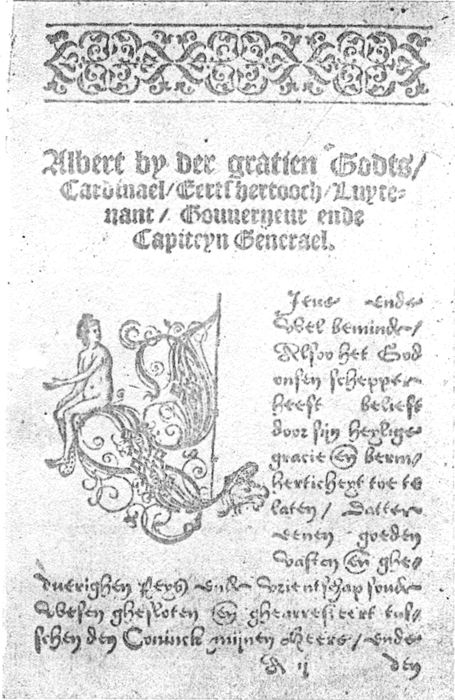 Albert by der gratien Godts/
Cardinael/Eertshertooch/Luyte-
nant/ Gouverneur ende
Capiteyn Generael.
Lieve ende
wel beminde/
Alsoo het God
onsen schepper
heeft belieft
door sijn heylige
gracie eñ berm-
herticheyt toe te
laten/ datter
eenen goeden
vasten eñ ghe-
duerighen Peys ende vrientschap soude
wesen ghesloten eñ ghearresteert tus-
schen den Coninck mijnen Heere/ ende
A ij den